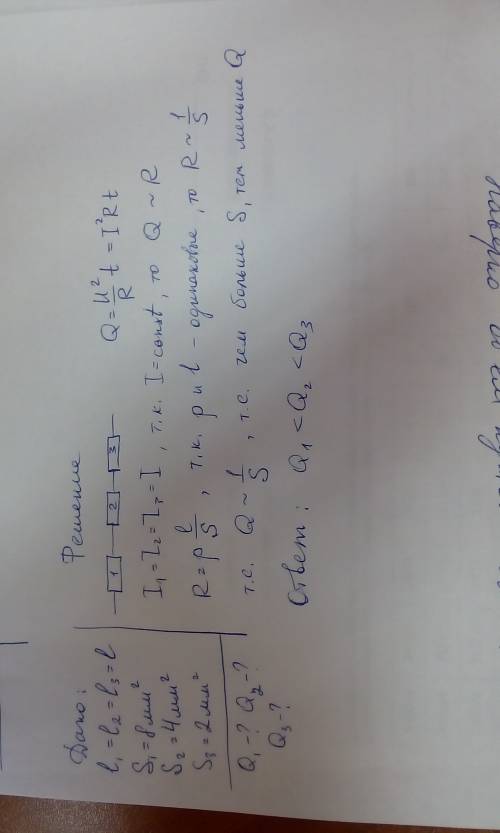 Дано:
l₁ = l₂ = l₃ = l
S₁ = 8 мм²
S₂ = 4 мм²
S₃ = 2 мм²
Q₁ - ? Q₂ - ?
Q₃ - ?
Решение
1 2 3
Q = U²/R t = I²Rt
I₁ = I₂ = I₃ = I, т.к. I = const, то Q ~ R
R = ρ l/S, т.к. ρ и l - одинаковые, то R ~ 1/S
т.е. Q ~ 1/S, т.е. чем больше S, тем меньше Q
Ответ: Q₁ < Q₂ < Q₃